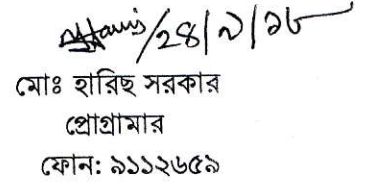 /২৪/৯/১৮
মোঃ হারিছ সরকার
প্রোগ্রামার
ফোন: ৯১১২৬৫৯